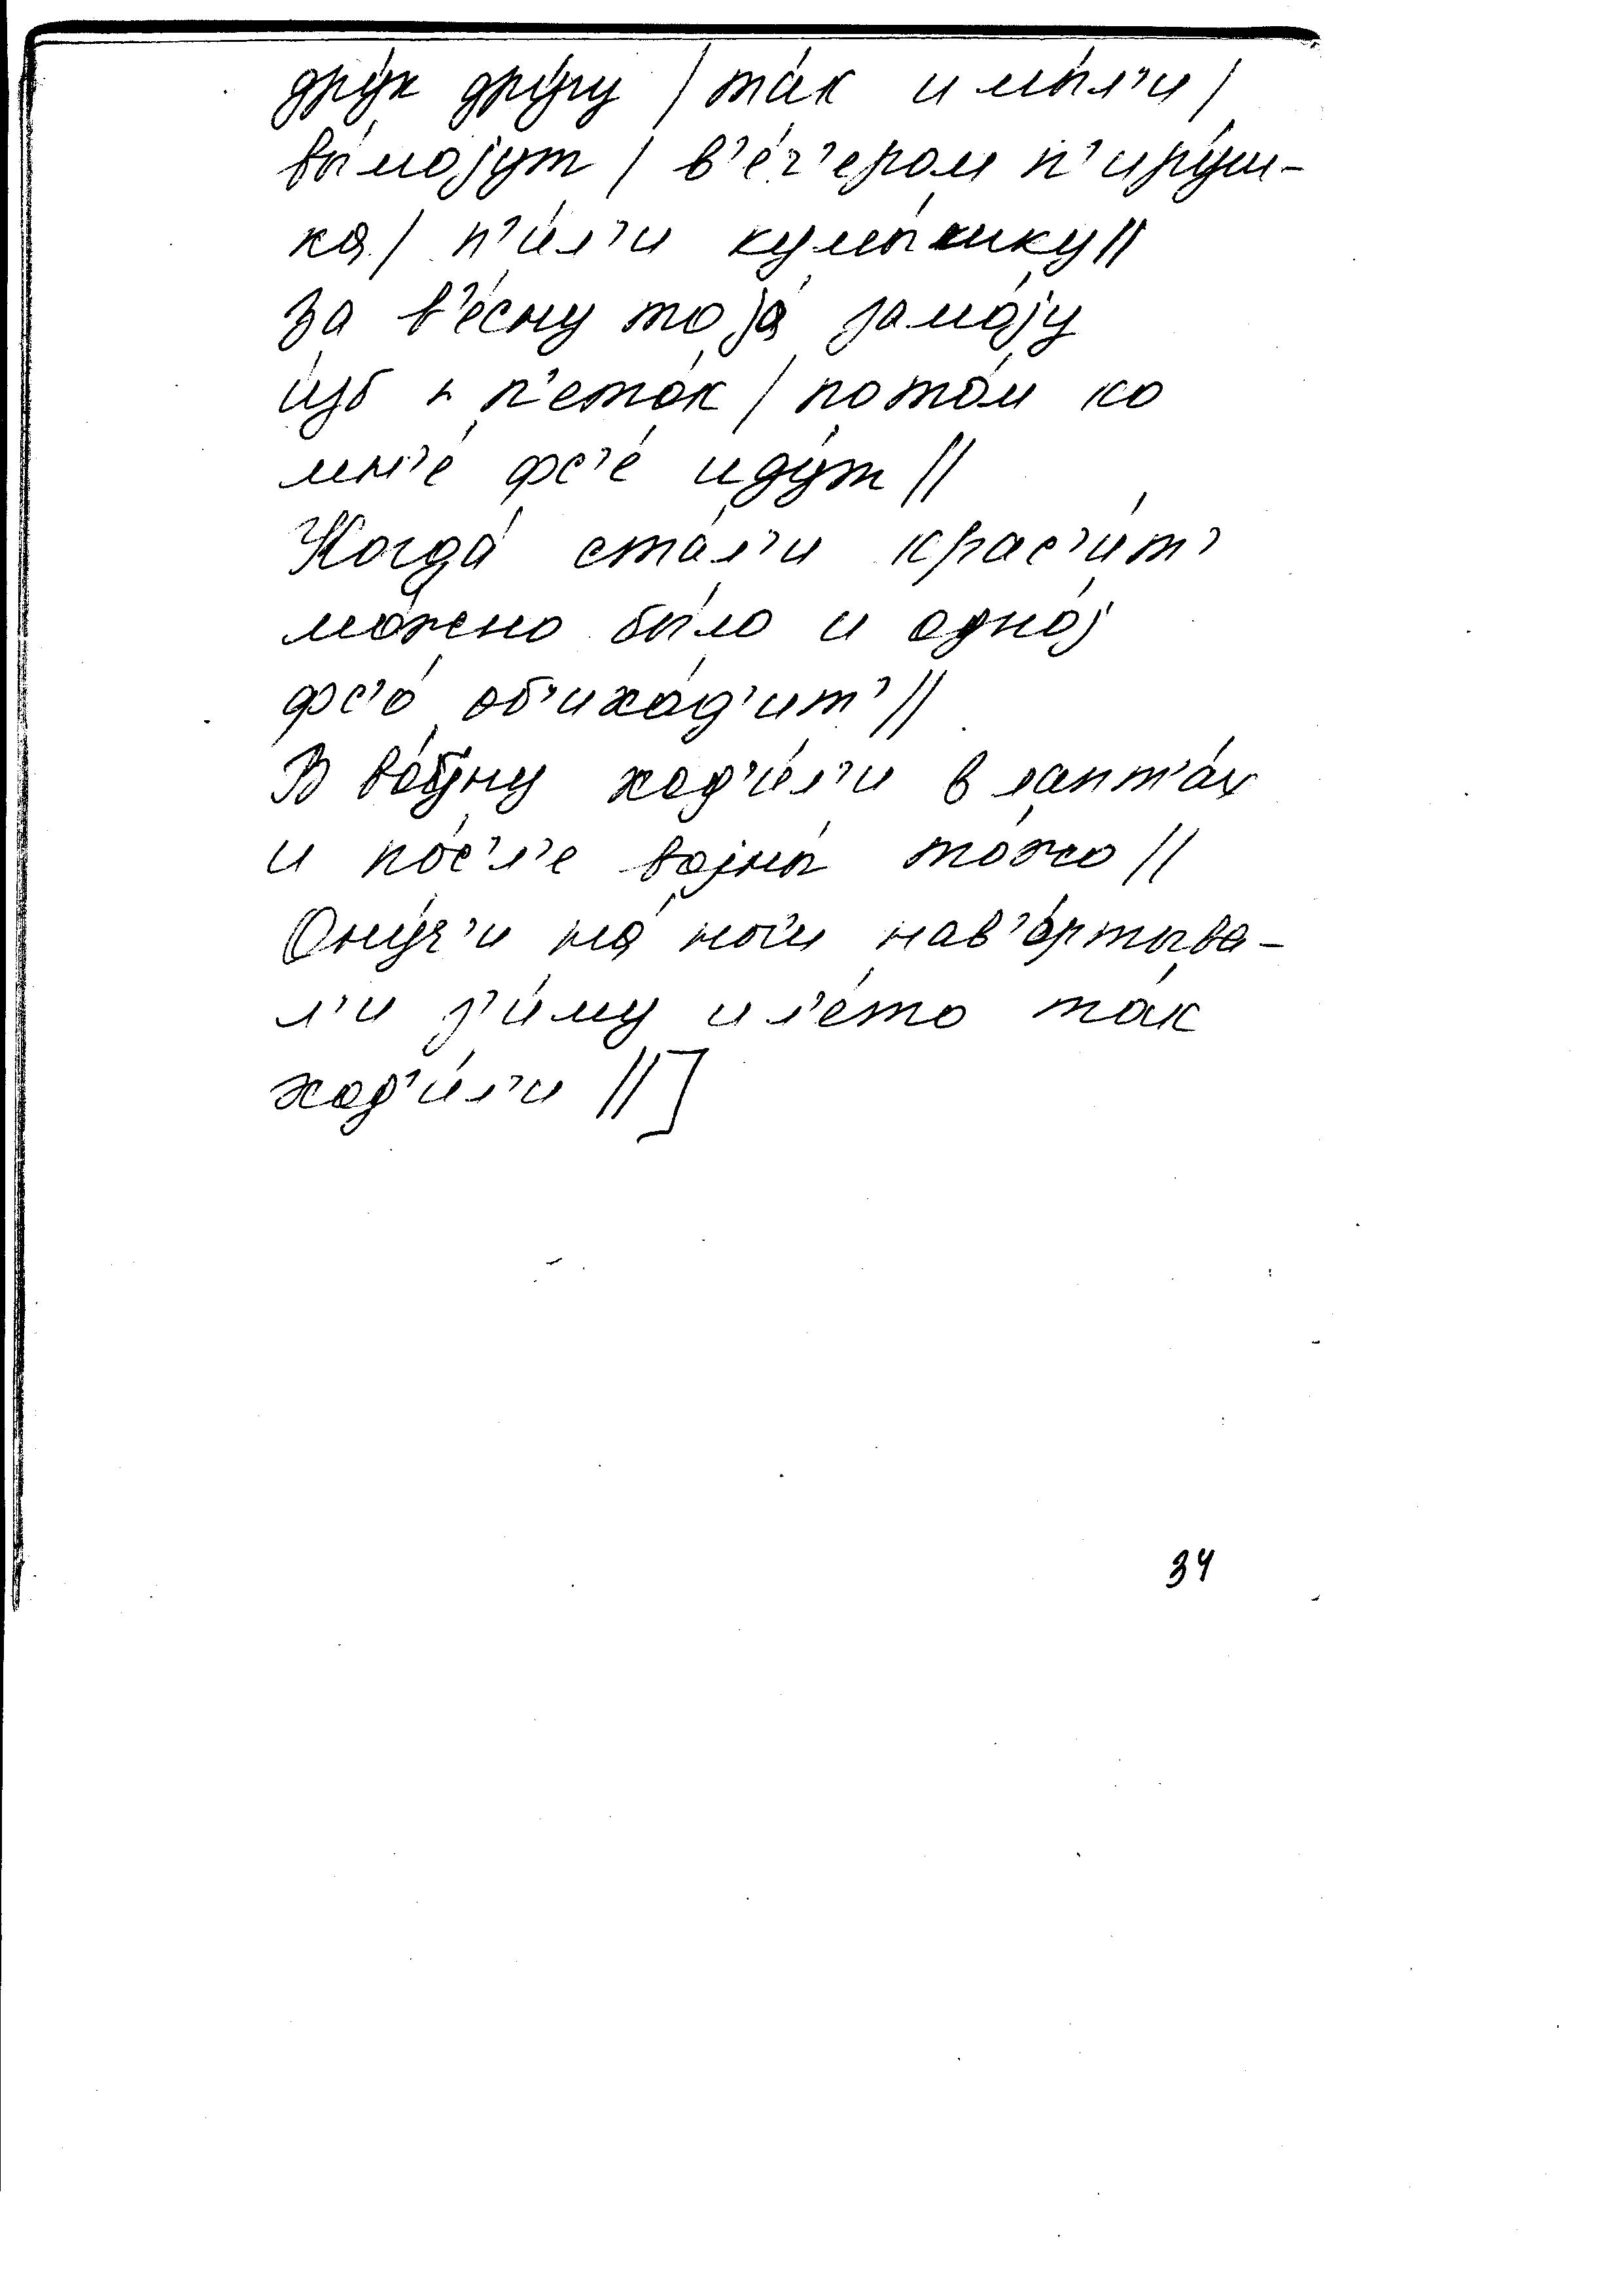 дру́к дру́гу / та́к и мы́л'и /
вы́мојут / в'е́ч'ером п'иру́ш-
ка / п'и́л'и кумы́шку //
За в'е́сну то ја́ замо́ју
и́зб п'ето́к / пото́м ко
мн'е́ фс'е́ иду́т //
Когда́ ста́л'и крас'и́т'
мо́жно бы́ло и одно́ј
фс'о́ об'ихо́д'ит' //
В ход'и́л'и в лапт'а́х
и по́с'л'е војны́ то́жо //
Ону́ч'и на́ ноги нав'о́ртыва-
л'и з'и́му и л'е́то та́к
ход'и́л'и // ]
34